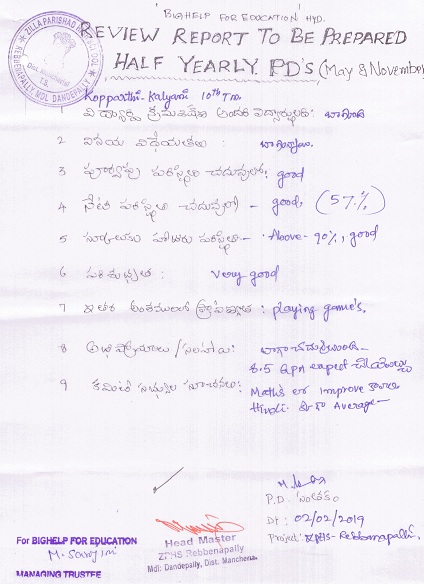 "BIGHELP FOR EDUCATION HYD.
REVIEW REPORT TO BE PREPARED
HALF YEARLY. P.D'S (May & November
ZILLA PARISHAD
REBBENAPALLY, MDL DANDEPALLY
T.S.
Kopparthi. Kalyani 10th T.m.
1 విద్యార్థి క్రమశిక్షణ బాగుంది
2 వినయ విధేయతలు: బాగున్నాయి.
3 పూర్వపు పరిస్థితి చదువులో: good
4 నేటి పరిస్థితి చదువులో - good, (57%)
5 స్కూలుకు హాజరు పరిస్థితి - Above - 90%, good
6 పరిశుభ్రత : very good
7 ఇతర అంశములలో ప్రావీణ్యత : playing game's.
8 అభిప్రాయాలు / సలహాలు: బాగా చదువుతుంది -
8.5 GPA expect చేయవచ్చు
9 కమిటీ సభ్యుల సూచనలు: Maths లో improve కావాలి
Hindi. కూడా Average -
P.D. సంతకం
Dt: 02/02/2019
Project: ZPHS- Rebbenapalli.
Head Master
ZPHS Rebbenapally
Mdl: Dandepally, Dist. Mancherial
For BIGHELP FOR EDUCATION
M. Sarojini
MANAGING TRUSTEE